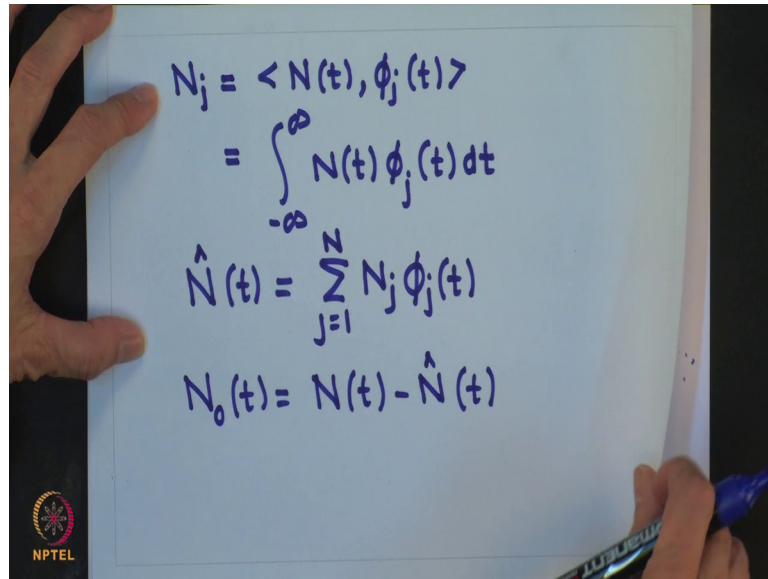 Nj = < N(t), ϕj(t) >
= ∫_{-∞}^{∞} N(t) ϕj(t) dt
N̂(t) = Σ_{j=1}^{N} Nj ϕj(t)
N₀(t) = N(t) - N̂(t)
NPTEL